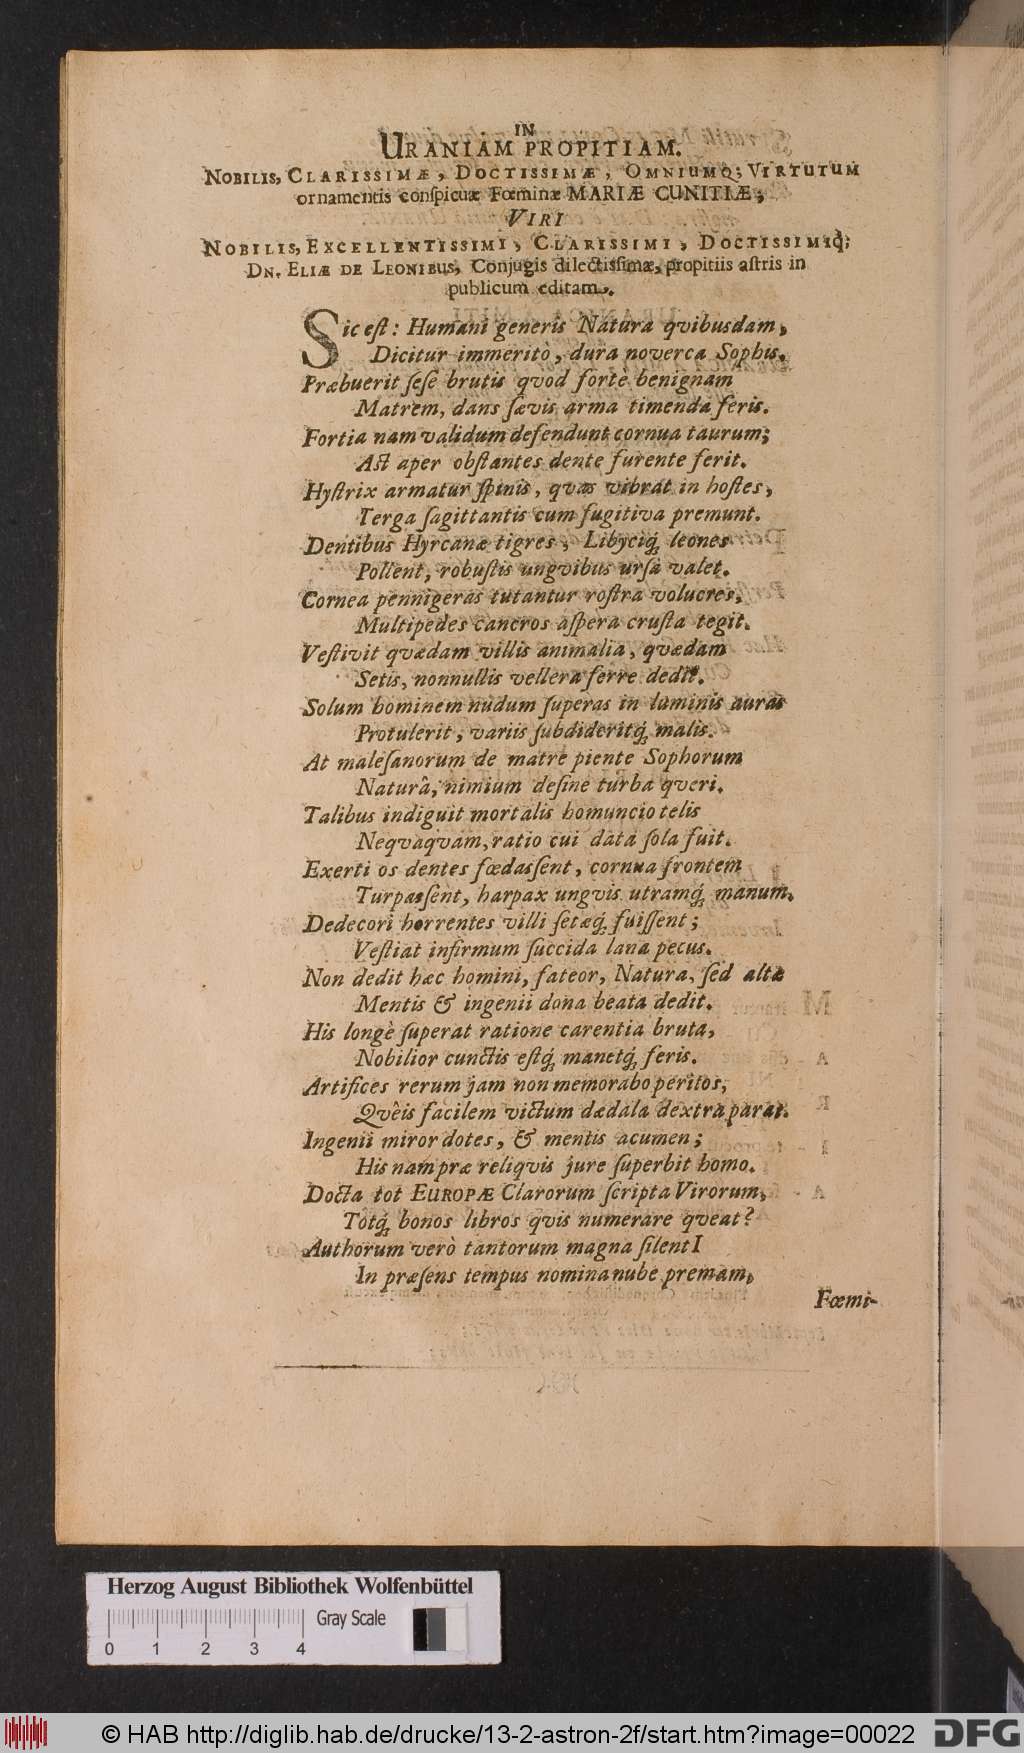 IN
URANIAM PROPITIAM.
NOBILIS, CLARISSIMÆ, DOCTISSIMÆ, OMNIUMQ; VIRTUTUM
ornamentis conſpicuæ Fœminæ MARIÆ CUNITIÆ,
VIRI
NOBILIS, EXCELLENTISSIMI, CLARISSIMI, DOCTISSIMIQ́;
DN. ELIÆ DE LEONIBUS, Conjugis dilectiſſimæ, propitiis aſtris in
publicum editam.
Sic eſt: Humani generis Natura qvibusdam,
Dicitur immeritò, dura noverca Sophis.
Præbuerit ſeſe brutis qvod fortè benignam
Matrem, dans ſævis arma timenda feris.
Fortia nam validum defendunt cornua taurum;
Aſt aper obſtantes dente furente ferit.
Hyſtrix armatur ſpinis, qvas vibrat in hoſtes,
Terga ſagittantis cum fugitiva premunt.
Dentibus Hyrcanæ tigres, Libyciq́; leones
Pollent, robuſtis ungvibus urſa valet.
Cornea pennigeras tutantur roſtra volucres,
Multipedes cancros aſpera cruſta tegit.
Veſtivit qvædam villis animalia, qvædam
Setis, nonnullis vellera ferre dedit.
Solum hominem nudum ſuperas in luminis auras
Protulerit, variis ſubdideritq́; malis.
At maleſanorum de matre piente Sophorum
Naturâ, nimium deſine turba qveri.
Talibus indiguit mortalis homuncio telis
Neqvaqvam, ratio cui data ſola fuit.
Exerti os dentes fœdaſſent, cornua frontem
Turpaſſent, harpax ungvis utramq́; manum.
Dedecori horrentes villi ſetæq́; fuiſſent;
Veſtiat infirmum ſuccida lana pecus.
Non dedit hæc homini, fateor, Natura, ſed alta
Mentis & ingenii dona beata dedit.
His longè ſuperat ratione carentia bruta,
Nobilior cunctis eſtq́; manetq́; feris.
Artifices rerum jam non memorabo peritos,
Qvêis facilem victum dædala dextra parat.
Ingenii miror dotes, & mentis acumen;
His nam præ reliqvis jure ſuperbit homo.
Docta tot EUROPÆ Clarorum ſcripta Virorum,
Totq́; bonos libros qvis numerare qveat?
Authorum verò tantorum magna ſilentI
In præſens tempus nomina nube premam,
Fœmi-
Herzog August Bibliothek Wolfenbüttel
Gray Scale
0 1 2 3 4
© HAB http://diglib.hab.de/drucke/13-2-astron-2f/start.htm?image=00022
DFG